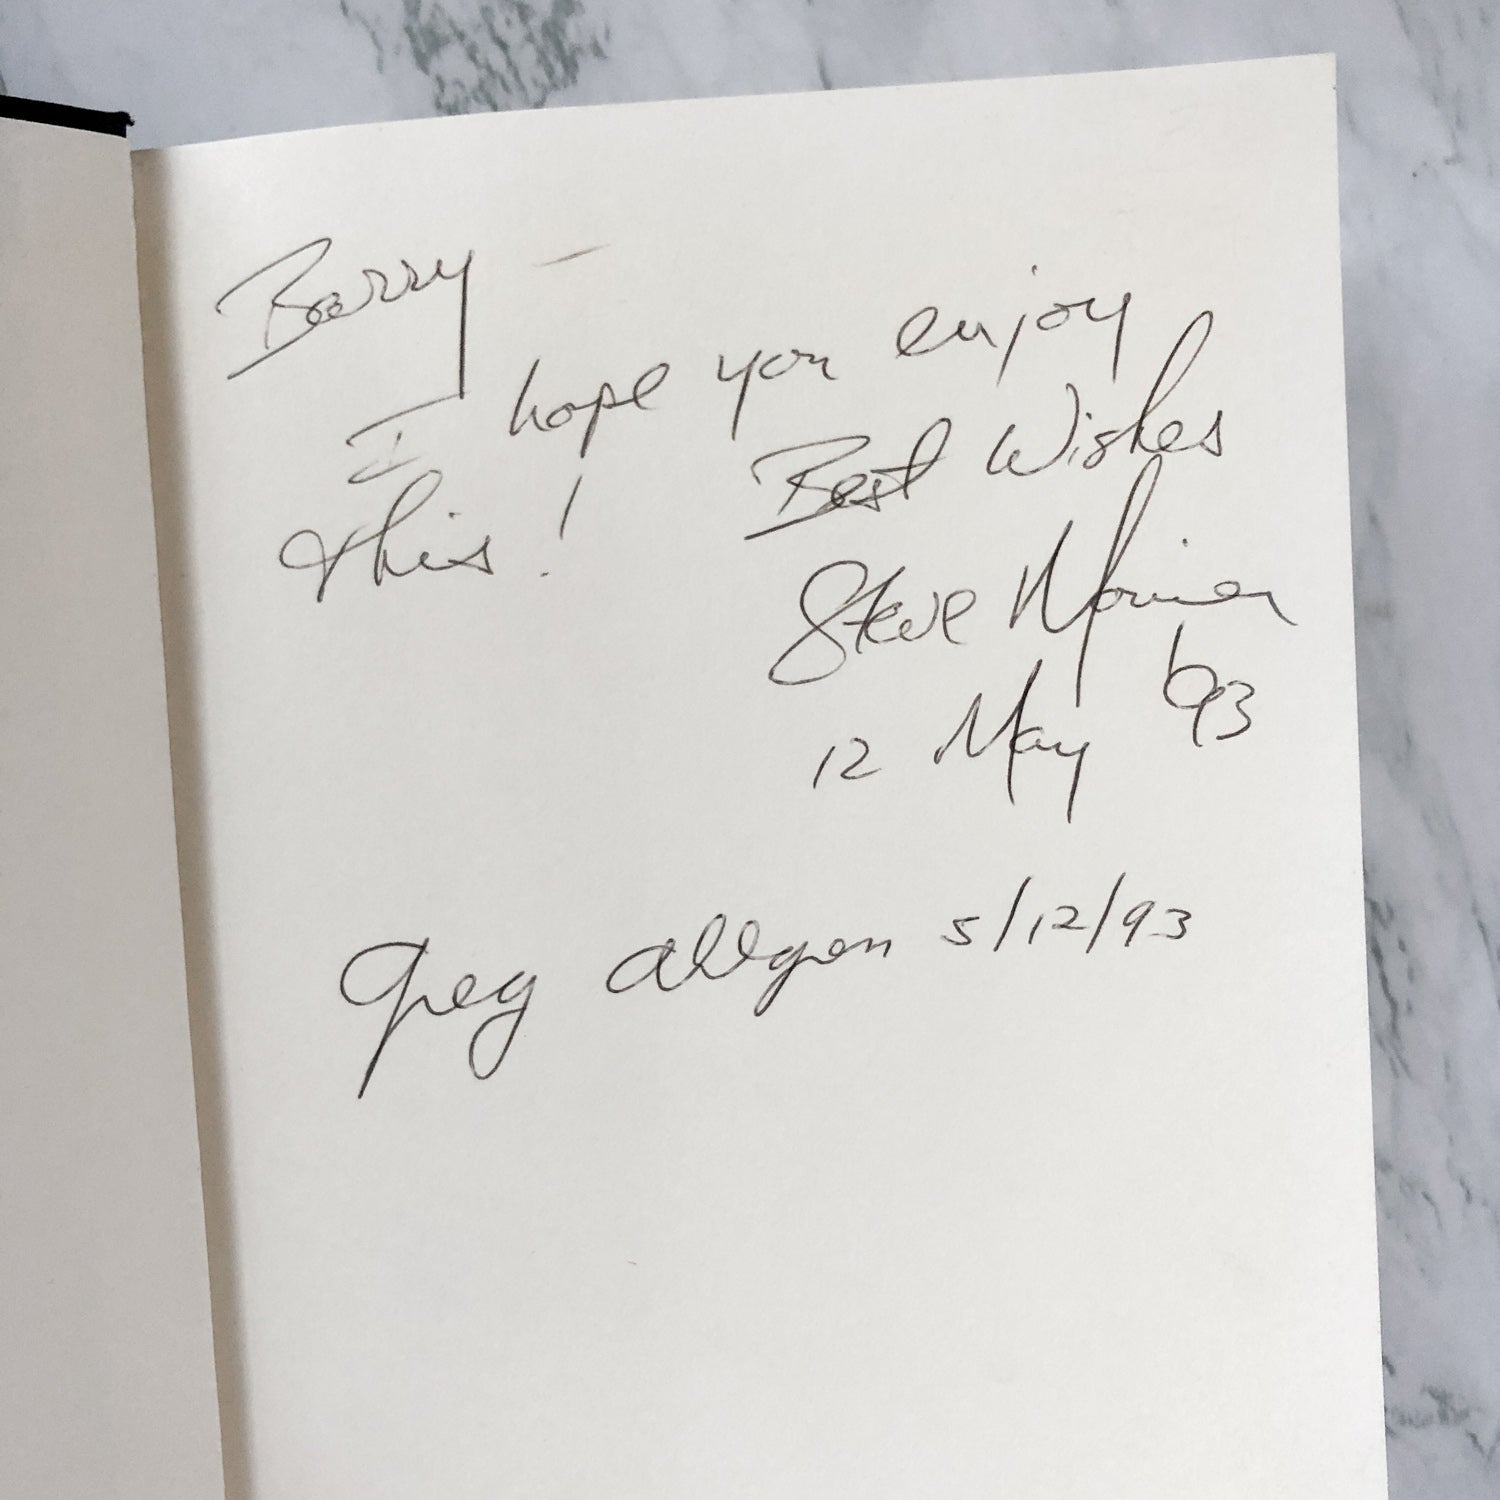 Barry —
I hope you enjoy
this!
Best Wishes
Steve
12 May '93
Greg 5/12/93